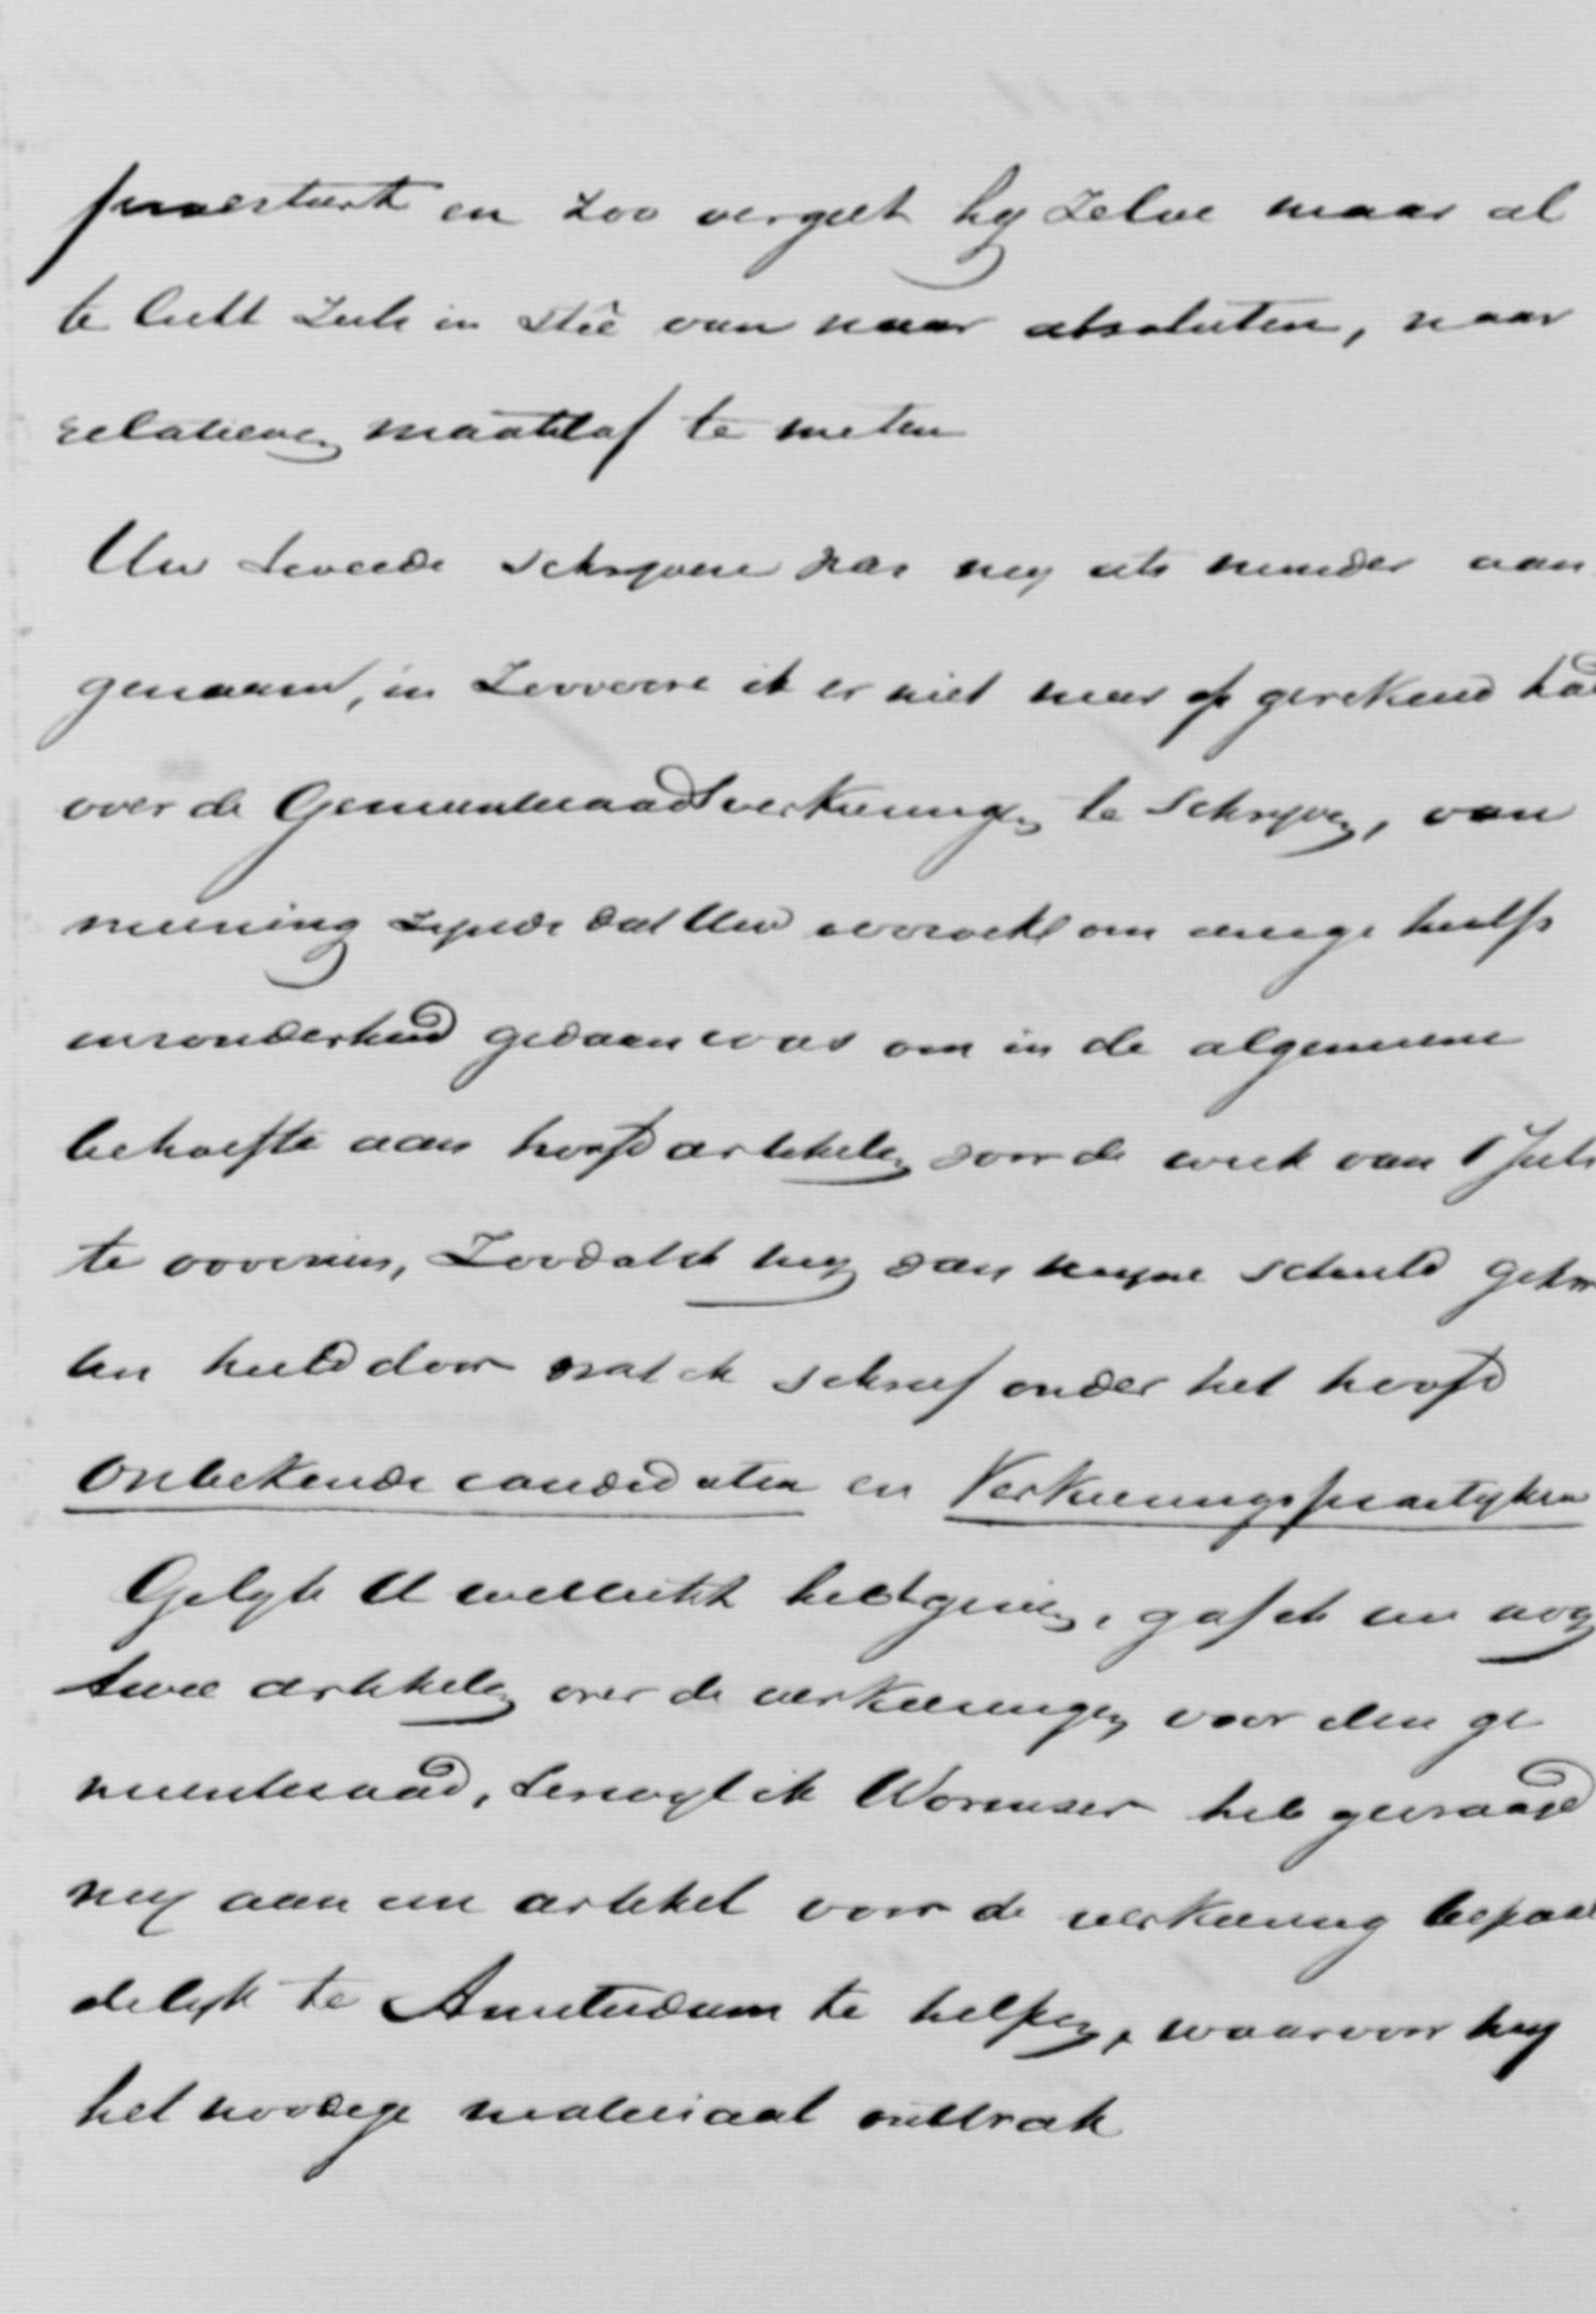 en zoo vergeet hy zelve maar al
te licht zich in steê van naar absoluten, naar
relatieven maatstaf te meten
Uw tweede schryven was my iets minder aan
genaam, in zooverre ik er niet meer op gerekend had
over de Gemeenteraadsverkiezingen te schryven, van
meening zynde dat Uw verzoek om eenige hulp
inzonderheid gedaan was om in de algemeene
behoefte aan hoofdartikelen voor de week van 1 Juli
te voorzien, zoodat ik my van myne schuld gekwe
ten hield door wat ik schreef onder het hoofd
Onbekende candidaten en Verkiezingspractyken
Gelyk U wellicht hebt gezien, gaf ik nu nog
twee artikelen over de verkiezingen voor den ge
meenteraad, terwyl ik Wormser heb gevraagd
my aan een artikel voor de verkiezing bepaal
delyk te Amsterdam te helpen, waarvoor hy
het noodige materiaal